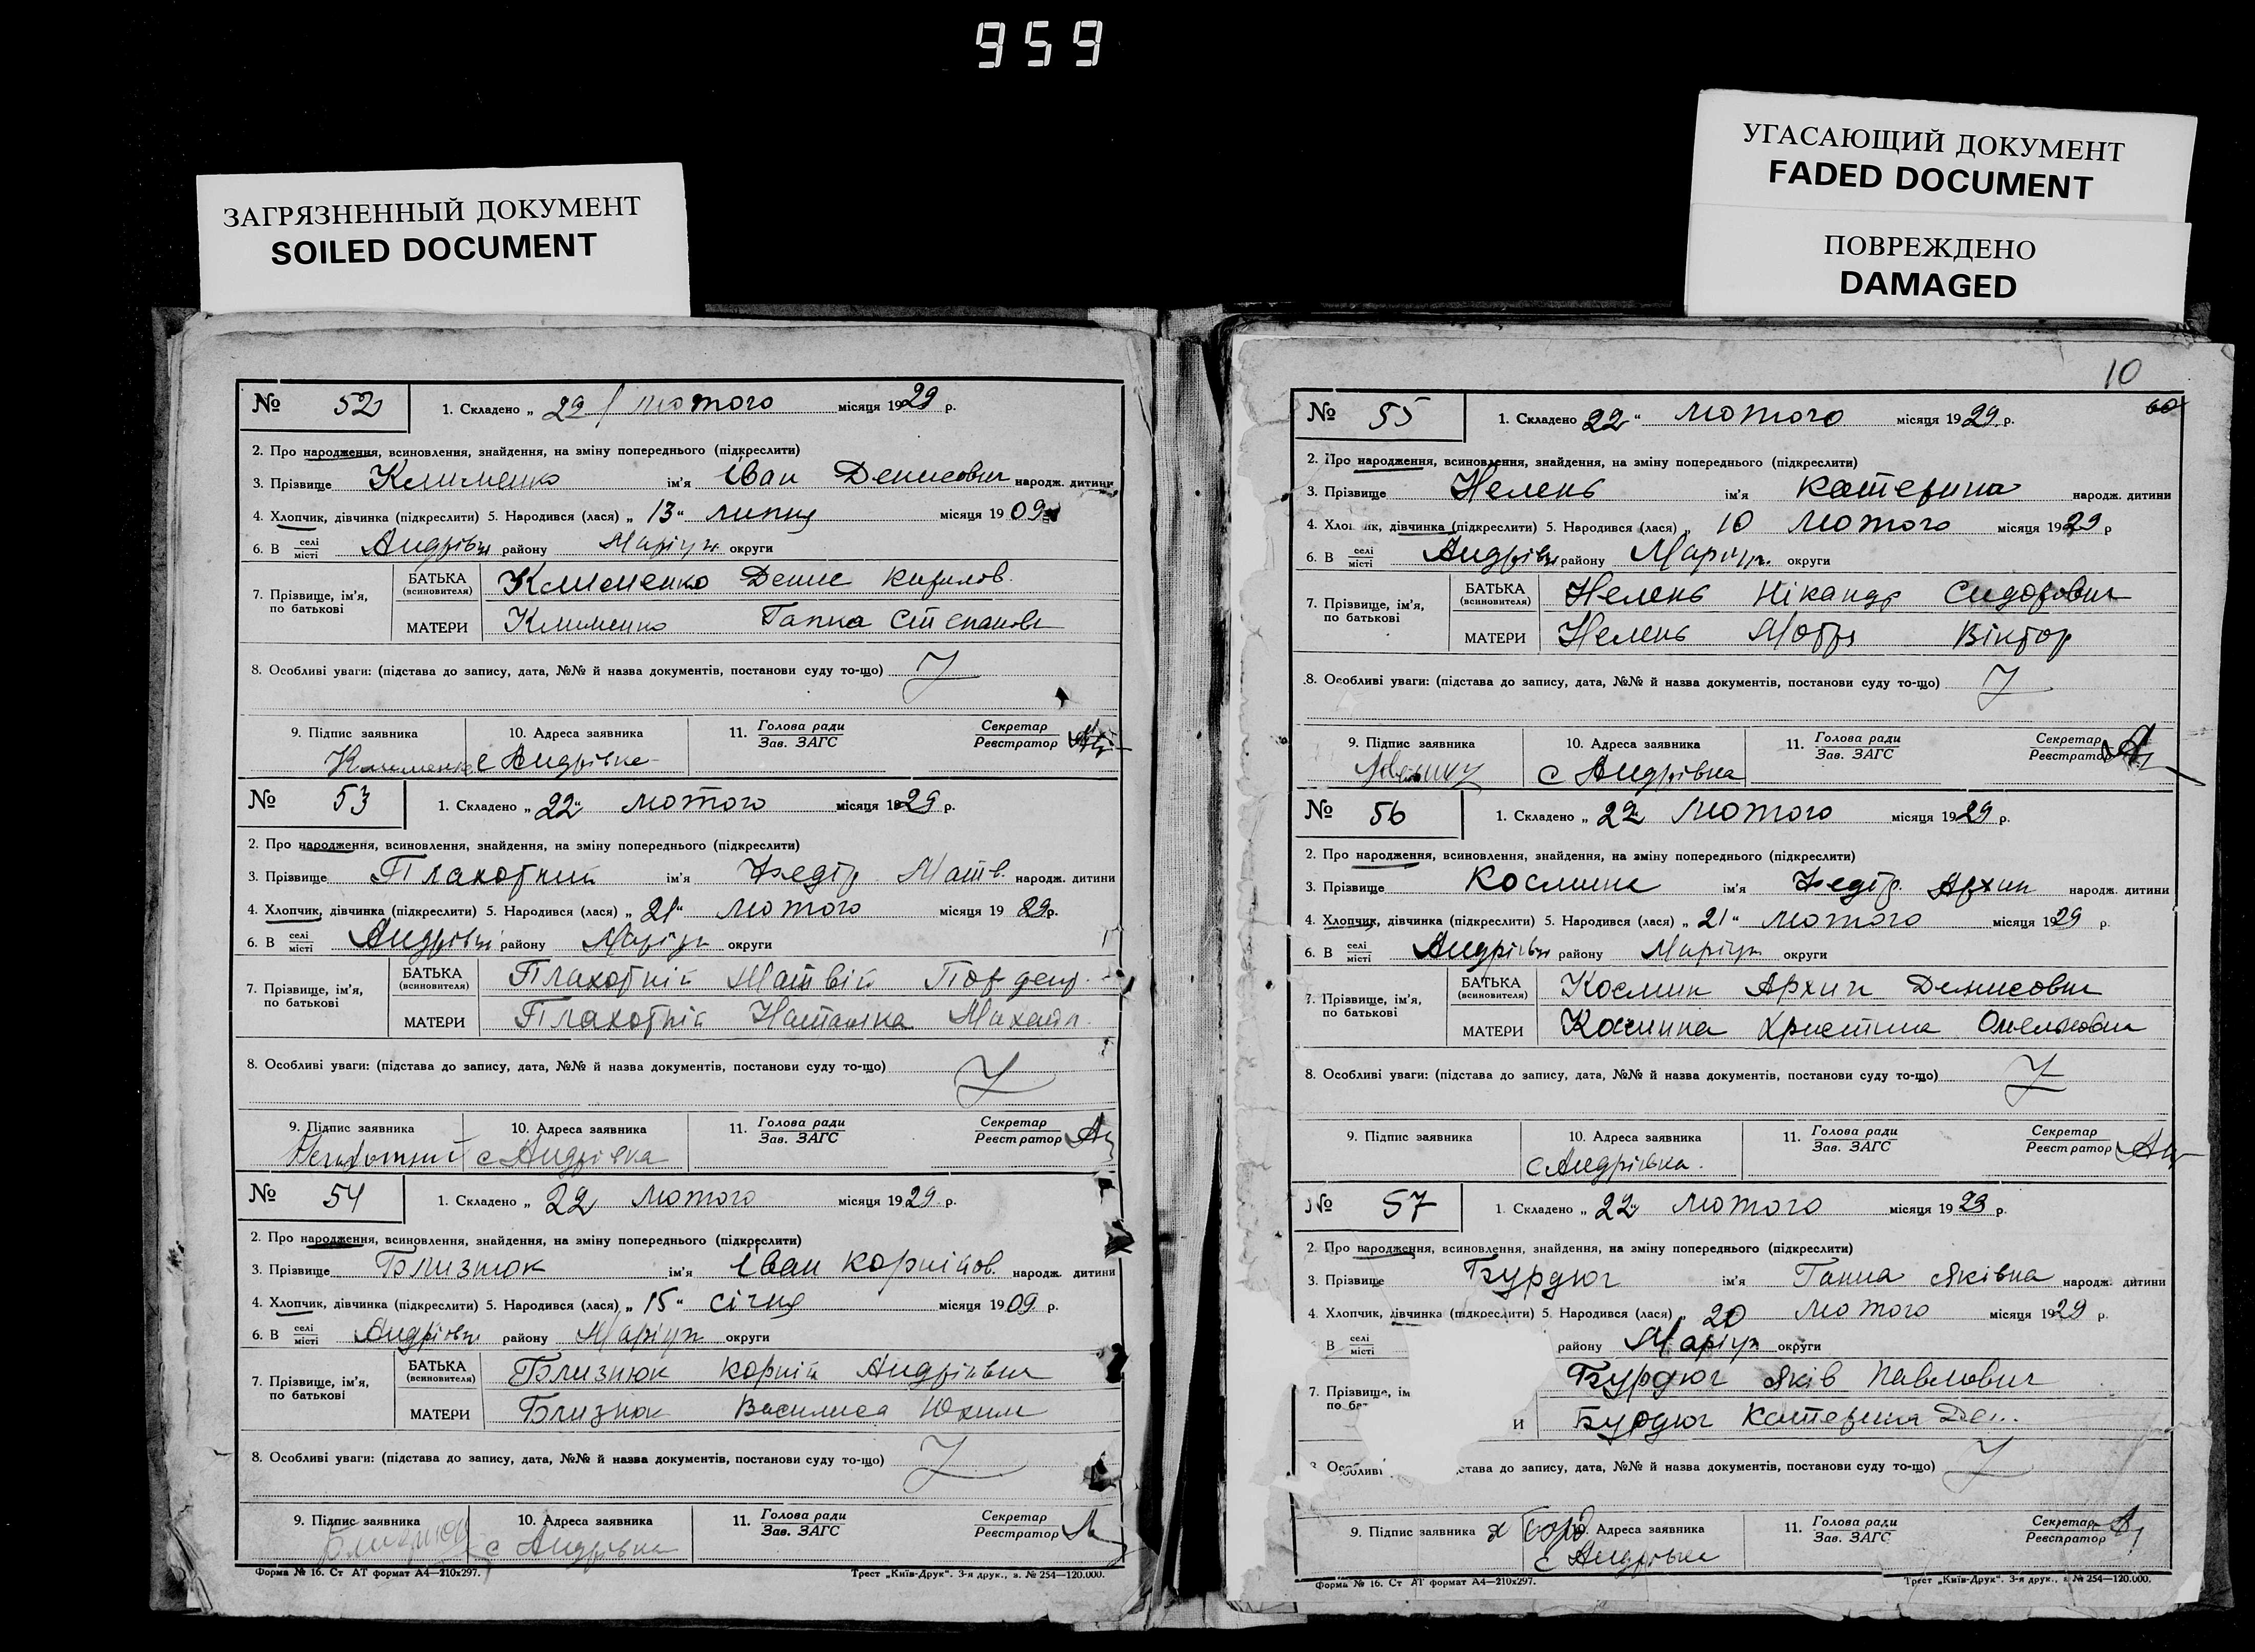 959
ЗАГРЯЗНЕННЫЙ ДОКУМЕНТ
SOILED DOCUMENT
УГАСАЮЩИЙ ДОКУМЕНТ
FADED DOCUMENT
ПОВРЕЖДЕНО
DAMAGED
№ 52 1. Складено „ 22 лютого місяця 1929 р.
2. Про народження, всиновлення, знайдення, на зміну попереднього (підкреслити)
3. Прізвище Клименко ім'я Іван Денисович народж. дитини
4. Хлопчик, дівчинка (підкреслити) 5. Народився (лася) „ 13 “ липня місяця 1909
6. В селі місті Андрівці району Маріуп. округи
7. Прізвище, ім'я, по батькові
БАТЬКА (всиновителя) Клименко Денис Кирилов.
МАТЕРИ Клименко Ганна Степанов
8. Особливі уваги: (підстава до запису, дата, №№ й назва документів, постанови суду то-що)
9. Підпис заявника 10. Адреса заявника 11. Голова ради Зав. ЗАГС Секретар Реєстратор
Клименко с Андрівка
№ 53 1. Складено „ 22 “ лютого місяця 1929 р.
2. Про народження, всиновлення, знайдення, на зміну попереднього (підкреслити)
3. Прізвище Плахотний ім'я Федір Матв. народж. дитини
4. Хлопчик, дівчинка (підкреслити) 5. Народився (лася) „ 21 “ лютого місяця 19 29 р.
6. В селі місті Андрівці району Маріуп округи
7. Прізвище, ім'я, по батькові
БАТЬКА (всиновителя) Плахотній Матвій
МАТЕРИ Плахотній Наталка Михайл.
8. Особливі уваги: (підстава до запису, дата, №№ й назва документів, постанови суду то-що)
9. Підпис заявника 10. Адреса заявника 11. Голова ради Зав. ЗАГС Секретар Реєстратор
с Андрівка
№ 54 1. Складено „ 22 лютого місяця 1929 р.
2. Про народження, всиновлення, знайдення, на зміну попереднього (підкреслити)
3. Прізвище Близнюк ім'я Іван Корнійов. народж. дитини
4. Хлопчик, дівчинка (підкреслити) 5. Народився (лася) „ 15 “ січня місяця 1909 р.
6. В селі місті Андрівці району Маріуп округи
7. Прізвище, ім'я, по батькові
БАТЬКА (всиновителя) Близнюк Корній Андрійович
МАТЕРИ Близнюк Василиса Юхим
8. Особливі уваги: (підстава до запису, дата, №№ й назва документів, постанови суду то-що)
9. Підпис заявника 10. Адреса заявника 11. Голова ради Зав. ЗАГС Секретар Реєстратор
Близнюк с Андрівка
Форма № 16. Ст АТ формат А4—210х297. Трест „Київ-Друк“. 3-я друк., з. № 254—120.000.
10
60
№ 55 1. Складено 22 “ лютого місяця 1929 р.
2. Про народження, всиновлення, знайдення, на зміну попереднього (підкреслити)
3. Прізвище Нелень ім'я Катерина народж. дитини
4. Хло ик, дівчинка (підкреслити) 5. Народився (лася) „ 10 лютого місяця 1929 р
6. В селі місті Андрівці району Маріуп. округи
7. Прізвище, ім'я, по батькові
БАТЬКА (всиновителя) Нелень Нікандр Сидорович
МАТЕРИ Нелень Мотря Віктор
8. Особливі уваги: (підстава до запису, дата, №№ й назва документів, постанови суду то-що)
9. Підпис заявника 10. Адреса заявника 11. Голова ради Зав. ЗАГС Секретар Реєстратор
с Андрівка
№ 56 1. Складено „ 22 лютого місяця 1929 р.
2. Про народження, всиновлення, знайдення, на зміну попереднього (підкреслити)
3. Прізвище Космина ім'я Федір Архип народж. дитини
4. Хлопчик, дівчинка (підкреслити) 5. Народився (лася) „ 21 “ лютого місяця 1929 р.
6. В селі місті Андрівці району Маріуп округи
7. Прізвище, ім'я, по батькові
БАТЬКА (всиновителя) Космин Архип Денисович
МАТЕРИ Космина Христина Омельковна
8. Особливі уваги: (підстава до запису, дата, №№ й назва документів, постанови суду то-що)
9. Підпис заявника 10. Адреса заявника 11. Голова ради Зав. ЗАГС Секретар Реєстратор
с Андрівка.
№ 57 1. Складено „ 22 “ лютого місяця 1929 р.
2. Про народження, всиновлення, знайдення, на зміну попереднього (підкреслити)
3. Прізвище Бурдюг ім'я Ганна Яківна народж. дитини
4. Хлопчик, дівчинка (підкреслити) 5. Народився (лася) „ 20 лютого місяця 1929 р.
В селі місті району Маріуп округи
7. Прізвище, ім по ба
Бурдюг Яків Павлович
И Бурдюг Катерина
Особливі става до запису, дата, №№ й назва документів, постанови суду то-що)
9. Підпис заявника 10. Адреса заявника 11. Голова ради Зав. ЗАГС Секретар Реєстратор
с Андрівка
Форма № 16. Ст АТ формат А4—210х297. Трест „Київ-Друк“. 3-я друк., з. № 254—120.000.